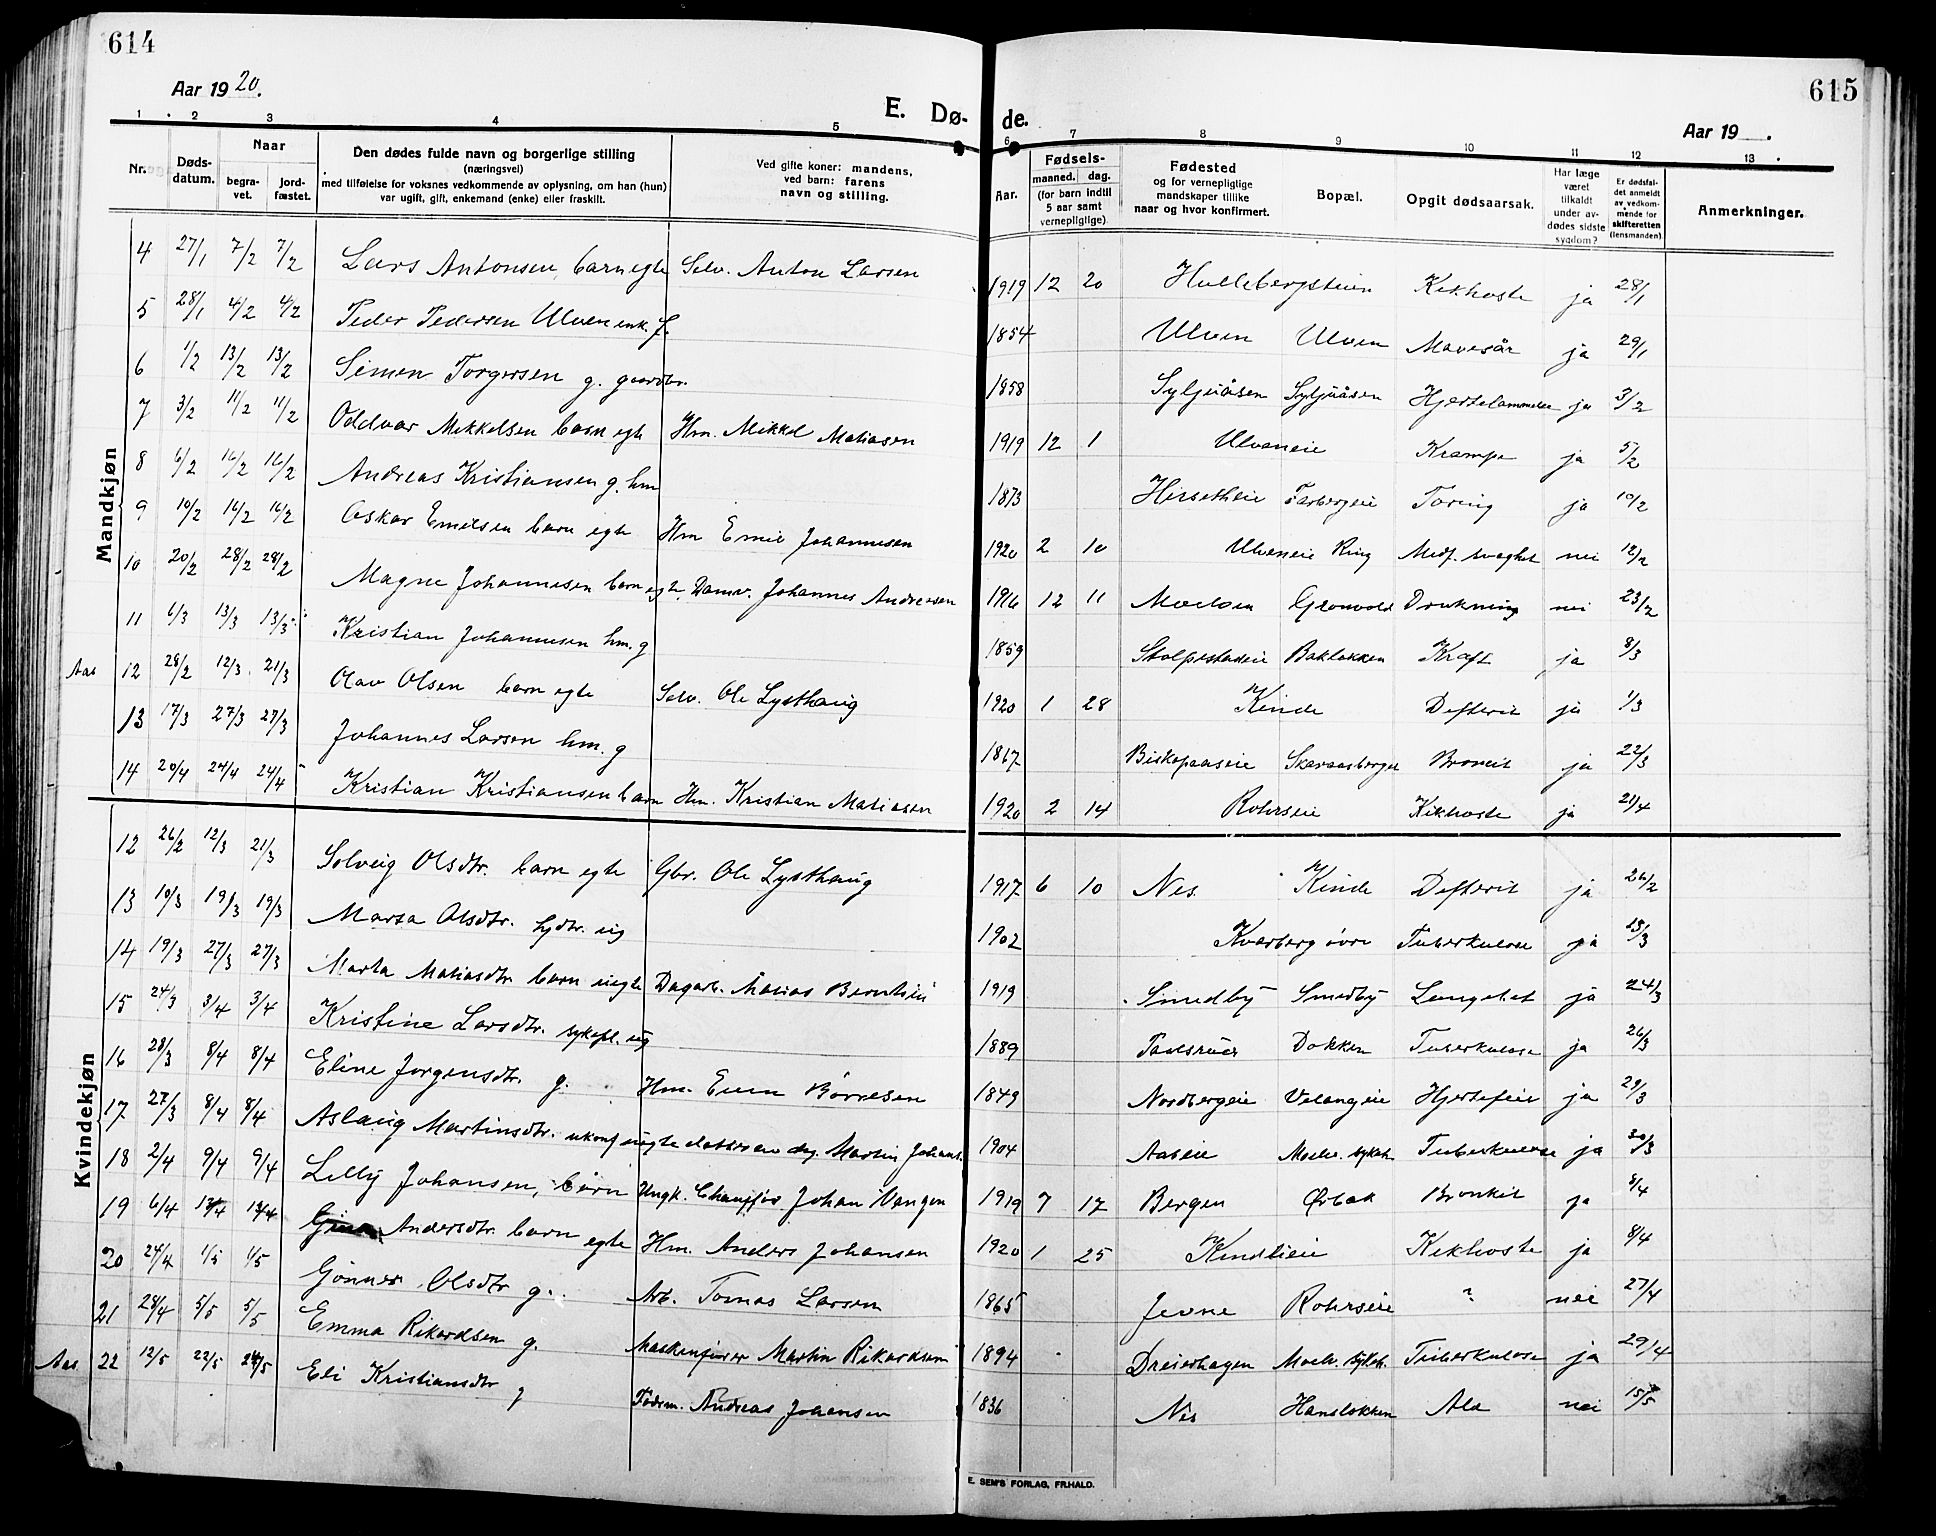 614
615
Aar 1920.
E. Dø- de.
Aar 19 .
1 2 3 4 5 6 7 8 9 10 11 12 13
Nr. Døds-datum. Naar begra-vet. jord-fæstet. Den dødes fulde navn og borgerlige stilling (næringsvei) med tilføielse for voksnes vedkommende av oplysning, om han (hun) var ugift, gift, enkemand (enke) eller fraskilt. Ved gifte koner: mandens, ved barn: farens navn og stilling. Aar. Fødsels- maaned. dag. (for barn indtil 5 aar samt vernepligtige) Fødested og for vernepligtige mandskaper tillike naar og hvor konfirmert. Bopæl. Opgit dødsaarsak. Har læge været tilkaldt under av-dødes sidste sygdom? Er dødsfal-det anmeldt av vedkom-mende for skifteretten (lensmanden) Anmerkninger.
Mandkjøn
4 27/1 7/2 7/2 Lars Antonsen, barn egte Selv. Anton Larsen 1919 12 20 Hullebergsteien Kikhoste ja 28/1
5 28/1 4/2 4/2 Peder Pedersen Ulven enk. f. 1854 Ulven Ulven Mavesår ja 29/1
6 1/2 13/2 13/2 Simen Torgersen g. gaardbr. 1858 Syljuåsen Syljuåsen Hjertelammelse ja 3/2
7 3/2 11/2 11/2 Oddvar Mikkelsen barn egte Hm. Mikkel Matiasen 1919 12 1 Ulveneie Krampe ja 5/2
8 6/2 16/2 16/2 Andreas Kristiansen g. hm 1873 Hirsetheie Tæring ja 10/2
9 10/2 16/2 16/2 Oskar Emilsen barn egte Hm Emil Johannesen 1920 2 10 Ulveneie Ring Medf. svaghet nei 12/2
10 20/2 28/2 28/2 Magne Johannesen barn egte, Damv. Johannes Andresen 1916 12 11 Moelven Grønvold Drukning nei 23/2
11 6/3 13/3 13/3 Kristian Johannesen hm. g 1859 Stolpestadeie Bakløkken Kræft ja 8/3
Aas 12 28/2 12/3 21/3 Olav Olsen barn egte Selv. Ole Lysthaug 1920 1 28 Kinde Difterit ja 1/3
13 17/3 27/3 27/3 Johannes Larsen hm. g 1867 Biskopaaseie Skaraasberget ja 22/3
14 20/4 24/4 24/4 Kristian Kristiansen barn Hm. Kristian Matiasen 1920 2 14 Rohrseie Kikhoste ja 21/4
Kvindekjøn
12 26/2 12/3 21/3 Solveig Olsdtr. barn egte Gbr. Ole Lysthaug 1917 6 10 Nes Kinde Difterit ja 26/2
13 10/3 19/3 19/3 Marta Olsdtr. hjdtr. ug 1902 Kværberg øvre Tuberkulose ja 13/3
14 19/3 27/3 27/3 Marta Matiasdtr. barn uegte Dagarb. Matias Berntsen 1919 Smedby Smedby Lungebet ja 24/3
15 24/3 3/4 3/4 Kristine Larsdtr. sykepl. ug 1889 Dokken Tuberkulose ja 26/3
16 28/3 8/4 8/4 Eline Jørgensdtr. g. Hm. Even Børresen 1849 Nordbergeie Velangeie Hjertefeil ja 29/3
17 27/3 8/4 8/4 Aslaug Martinsdtr. ukonf uegte datter av dag. Martin Johans. 1904 Aaseie Moelv. sykeh. Tuberkulose ja 30/3
18 2/4 9/4 9/4 Lilly Johansen, barn Ungk. Chauffør Johan Vangen 1919 7 17 Bergen Ørbæk Bronkit ja 8/4
19 6/4 13/4 13/4 Gina Andersdtr. barn egte Hm. Anders Johansen 1920 1 25 Kindlieie Kikhoste ja 8/4
20 24/4 1/5 1/5 Gønner Olsdtr g. Arb. Tomas Larsen 1865 Jevne Rohrseie ? nei 27/4
21 28/4 5/5 5/5 Emma Rikardsen g. Maskenfører Martin Rikardsen 1894 Dreierhagen Moelv. sykeh. Tuberkulose ja 29/4
Aas. 22 12/5 22/5 24/5 Eli Kristiansdtr g Føderm. Andreas Johansen 1836 Nes Hansløkken Ala nei 15/5
E. SEM'S FORLAG, FR.HALD.